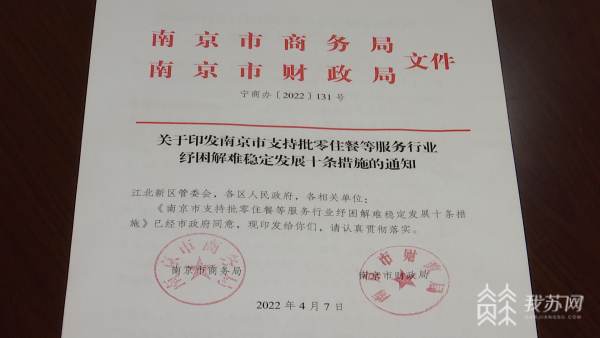 南京市商务局
南京市财政局
文件
宁商办〔2022〕131号
关于印发南京市支持批零住餐等服务行业
纾困解难稳定发展十条措施的通知
江北新区管委会，各区人民政府，各相关单位：
《南京市支持批零住餐等服务行业纾困解难稳定发展十条措
施》已经市政府同意，现印发给你们，请认真贯彻落实。
南京市商务局
南京市财政局
南京市商务局
南京市财政局
2022年4月7日
我苏网